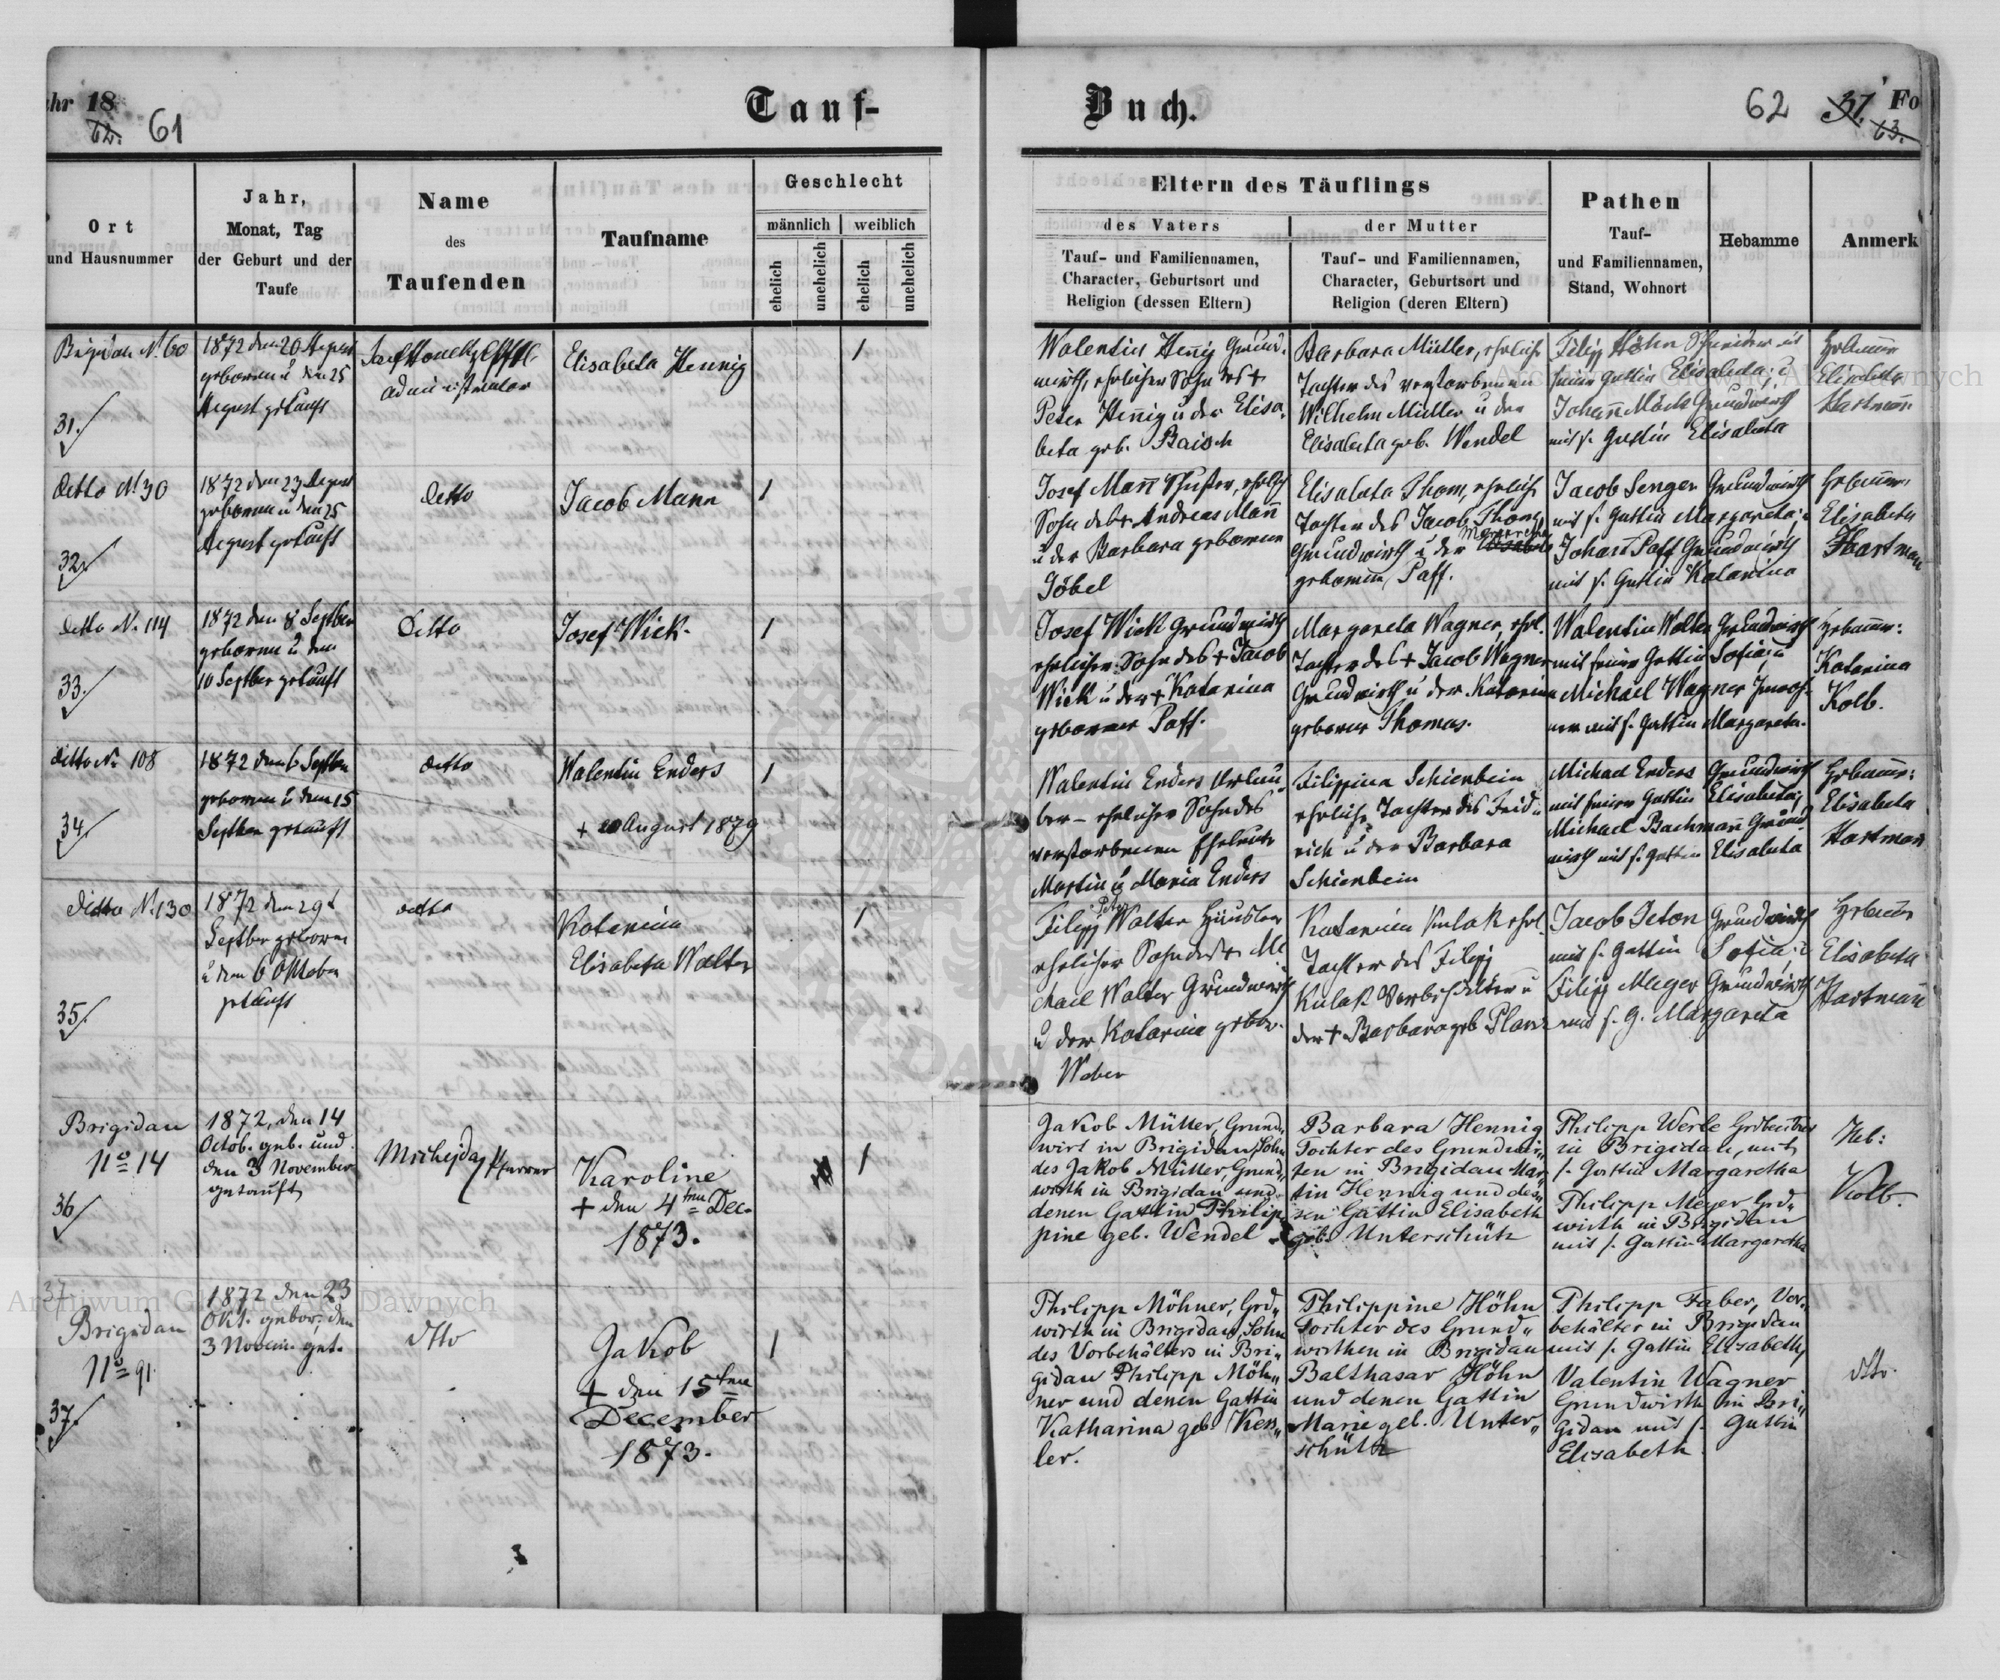 hr 18
62. 61
Tauf-
Buch.
62 37. Fo
63.
Ort
und Hausnummer
Jahr,
Monat, Tag
der Geburt und der
Taufe
Name
des
Taufenden
Taufname
Geschlecht
männlich weiblich
ehelich unehelich ehelich unehelich
Eltern des Täuflings
des Vaters
Tauf- und Familiennamen,
Character, Geburtsort und
Religion (dessen Eltern)
der Mutter
Tauf- und Familiennamen,
Character, Geburtsort und
Religion (deren Eltern)
Pathen
Tauf-
und Familiennamen,
Stand, Wohnort
Hebamme
Anmerk
Brigidau No 60
31.
1872 den 20 August
geboren u den 25
August getauft
administrator
Elisabeta Hennig
1
Walentin Henig Grund-
wirth, ehelicher Sohn des +
Peter Henig u der Elisa-
beta geb. Baisch
Barbara Müller, eheliche
Tochter des verstorbenen
Wilhelm Müller u der
Elisabeta geb. Wendel
Filip Höhn Schneider u
seine Gattin Elisabeta; u
Johann Möck Grundwirth
mit s. Gattin Elisabeta
Hebamme
Elisabeta
Hartman.
Detto No 30
32.
1872 den 23 August
geboren u den 25
August getauft
detto
Jacob Mann
1
Josef Mann Schuster, ehelich
Sohn des + Andreas Mann
u der Barbara geborene
Jöbel
Elisabeta Thom, eheliche
Tochter des Jacob Thom
Grundwirth u der Margareta
geborene Paff.
Jacob Senger Grundwirth
mit s. Gattin Margareta; u
Johann Paff Grundwirth
mit s. Gattin Katarina
Hebamme:
Elisabeta
Hartman
Detto No. 114
33.
1872 den 8 Septber
geboren u den
10 Septber getauft
Detto
Josef Wick.
1
Josef Wick Grundwirth
ehelicher Sohn des + Jacob
Wick u der + Katarina
geborener Paff.
Margareta Wagner, ehel.
Tochter des + Jacob Wagner
Grundwirth u der Katarina
geborene Thomas.
Walentin Walter Grundwirth
mit seiner Gattin Sofia; u
Michael Wagner
mit s. Gattin Margareta.
Hebamme:
Katarina
Kolb.
ditto No 108
34.
1872 den 6 Septber
geboren u den 15
Septber getauft
detto
Walentin Enders
+ 20 August 1879
1
Walentin Enders Urlau-
ber - ehelicher Sohn des
verstorbenen Eheleute
Martin u Maria Enders
Filippina Schienbein
eheliche Tochter des Frid-
rich u der Barbara
Schienbein
Michael Enders Grundwirth
mit seiner Gattin Elisabeta; u
Michael Bachmann Grund-
wirth mit s. Gattin Elisabeta
Hebamme:
Elisabeta
Hartman
Ditto No. 130
35.
1872 den 29t
Septber geboren
u den 6 Oktober
getauft
detto
Katarina
Elisabeta Walter
1
Peter
Filipp Walter Häusler
ehelicher Sohn des + Mi
chael Walter Grundwirth
u der Katarina gebor.
Weber
Katarina Kulak ehel.
Tochter des Filipp
Kulak Vorbehälter u
der + Barbara geb. Planz
Jacob Jeton Grundwirth
mit s. Gattin Sofia; u
Filipp Meger Grundwirth
und s. G. Margareta
Hebamme
Elisabeta
Hartmann
Brigidau
No 14
36
1872, den 14
Octob. geb. und
den 3 November
getauft
Michejda Pfarrer
Karoline
+ den 4ten Dec.
1873.
1
Jakob Müller, Grund-
wirt in Brigidau, Sohn
des Jakob Müller, Grund-
wirth in Brigidau und
denen Gattin Philip-
pine geb. Wendel.
Barbara Hennig
Tochter des Grundwir-
ten in Brigidau Mar-
tin Hennig und des-
sen Gattin Elisabeth
geb. Unterschütz
Philipp Werle Grdbesitzer
in Brigidau, mit
s. Gattin Margaretha
Philipp Meyer Grd-
wirth in Brigidau
mit s. Gattin Margaretha
Heb:
Kolb.
37
Brigidau
No 91
37.
1872 den 23
Okt. gebor, den
3 Novem. get.
dtto
Jakob
+ den 15ten
December
1873.
1
Philipp Möhner, Grd-
wirth in Brigidau, Sohn
des Vorbehälters in Bri-
gidau Philipp Möh-
ner und denen Gattin
Katharina geb. Kess-
ler.
Philippine Höhn
Tochter des Grund-
wirthen in Brigidau
Balthasar Höhn
und denen Gattin
Marie geb. Unter-
schütz
Philipp Faber, Vor-
behälter in Brigidau
mit s. Gattin Elisabeth,
Valentin Wagner
Grundwirth in Bri-
gidau mit s. Gattin
Elisabeth
dtto.
Archiwum Główne Akt Dawnych
Archiwum Główne Akt Dawnych